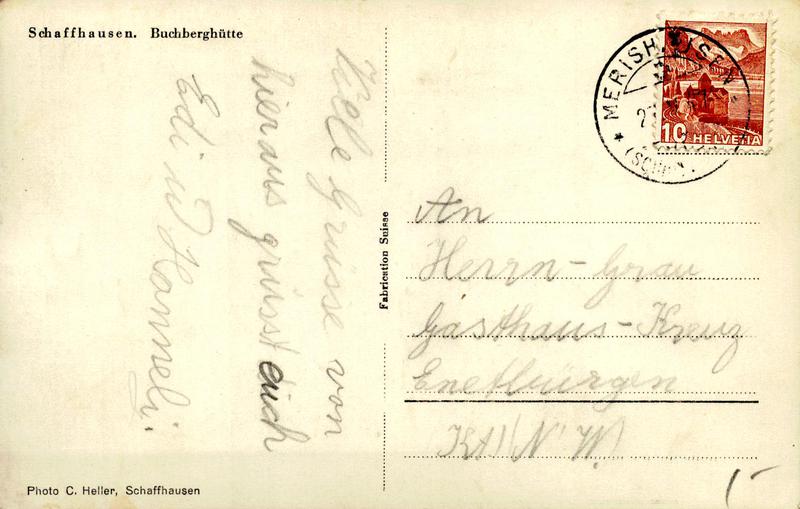 Schaffhausen. Buchberghütte
Viele Grüsse von
hieraus grüsst euch
Edi u Hanneli.
Photo C. Heller, Schaffhausen
Fabrication Suisse
MERISHAUSEN
(SCHFH.)
10 HELVETIA
An
Herrn - Grau
Gasthaus - Kreuz
Enetbürgen
KAT N.W.
1-